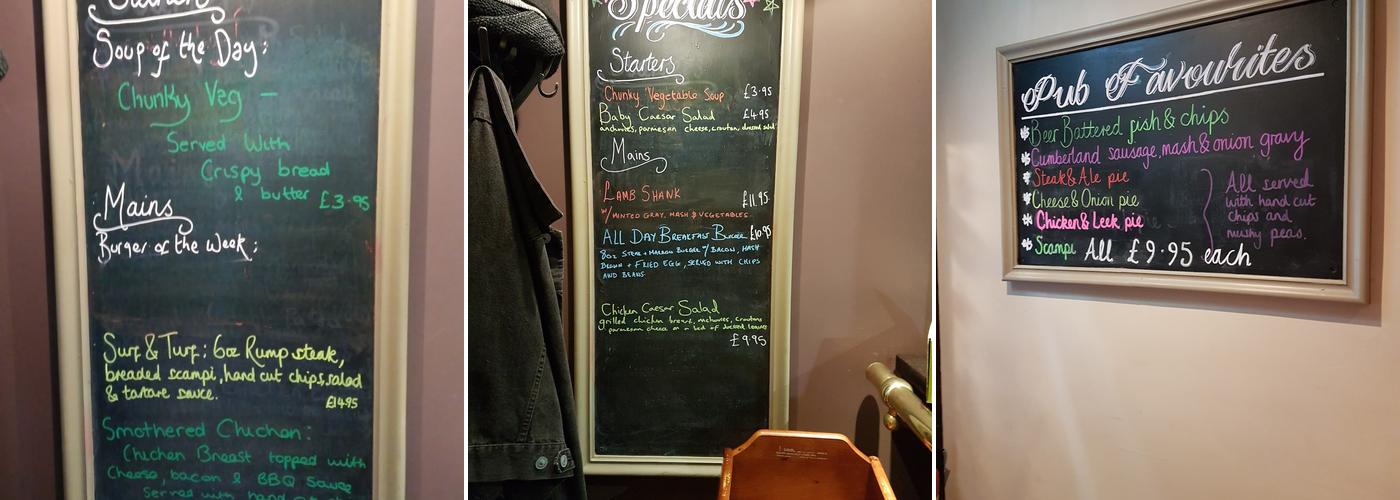 Soup of the Day:
Chunky Veg –
Served With
Crispy bread
& butter £3.95
Mains
Burger of the Week:
Surf & Turf: 6oz Rump steak,
breaded scampi, hand cut chips, salad
& tartare sauce.
£14.95
Smothered Chicken:
Chicken Breast topped with
Cheese, bacon & BBQ Sauce
Served with hand
Specials
Starters
Chunky Vegetable Soup £3.95
Baby Caesar Salad £4.95
anchovies, parmesan cheese, crouton, dressed salad
Mains
LAMB SHANK £11.95
W/MINTED GRAVY, MASH & VEGETABLES
ALL DAY BREAKFAST BURGER £10.95
8oz STEAK + BURGER W/ BACON, HASH
BROWN + FRIED EGG, SERVED WITH CHIPS
AND BEANS
Chicken Caesar Salad
grilled chicken breast, anchovies, croutons
parmesan cheese on a bed of dressed leaves
£9.95
Pub Favourites
Beer Battered fish & chips
Cumberland sausage, mash & onion gravy
Steak & Ale pie
Cheese & Onion pie
Chicken & Leek pie
Scampi
All served
with hand cut
chips and
mushy peas.
All £9.95 each